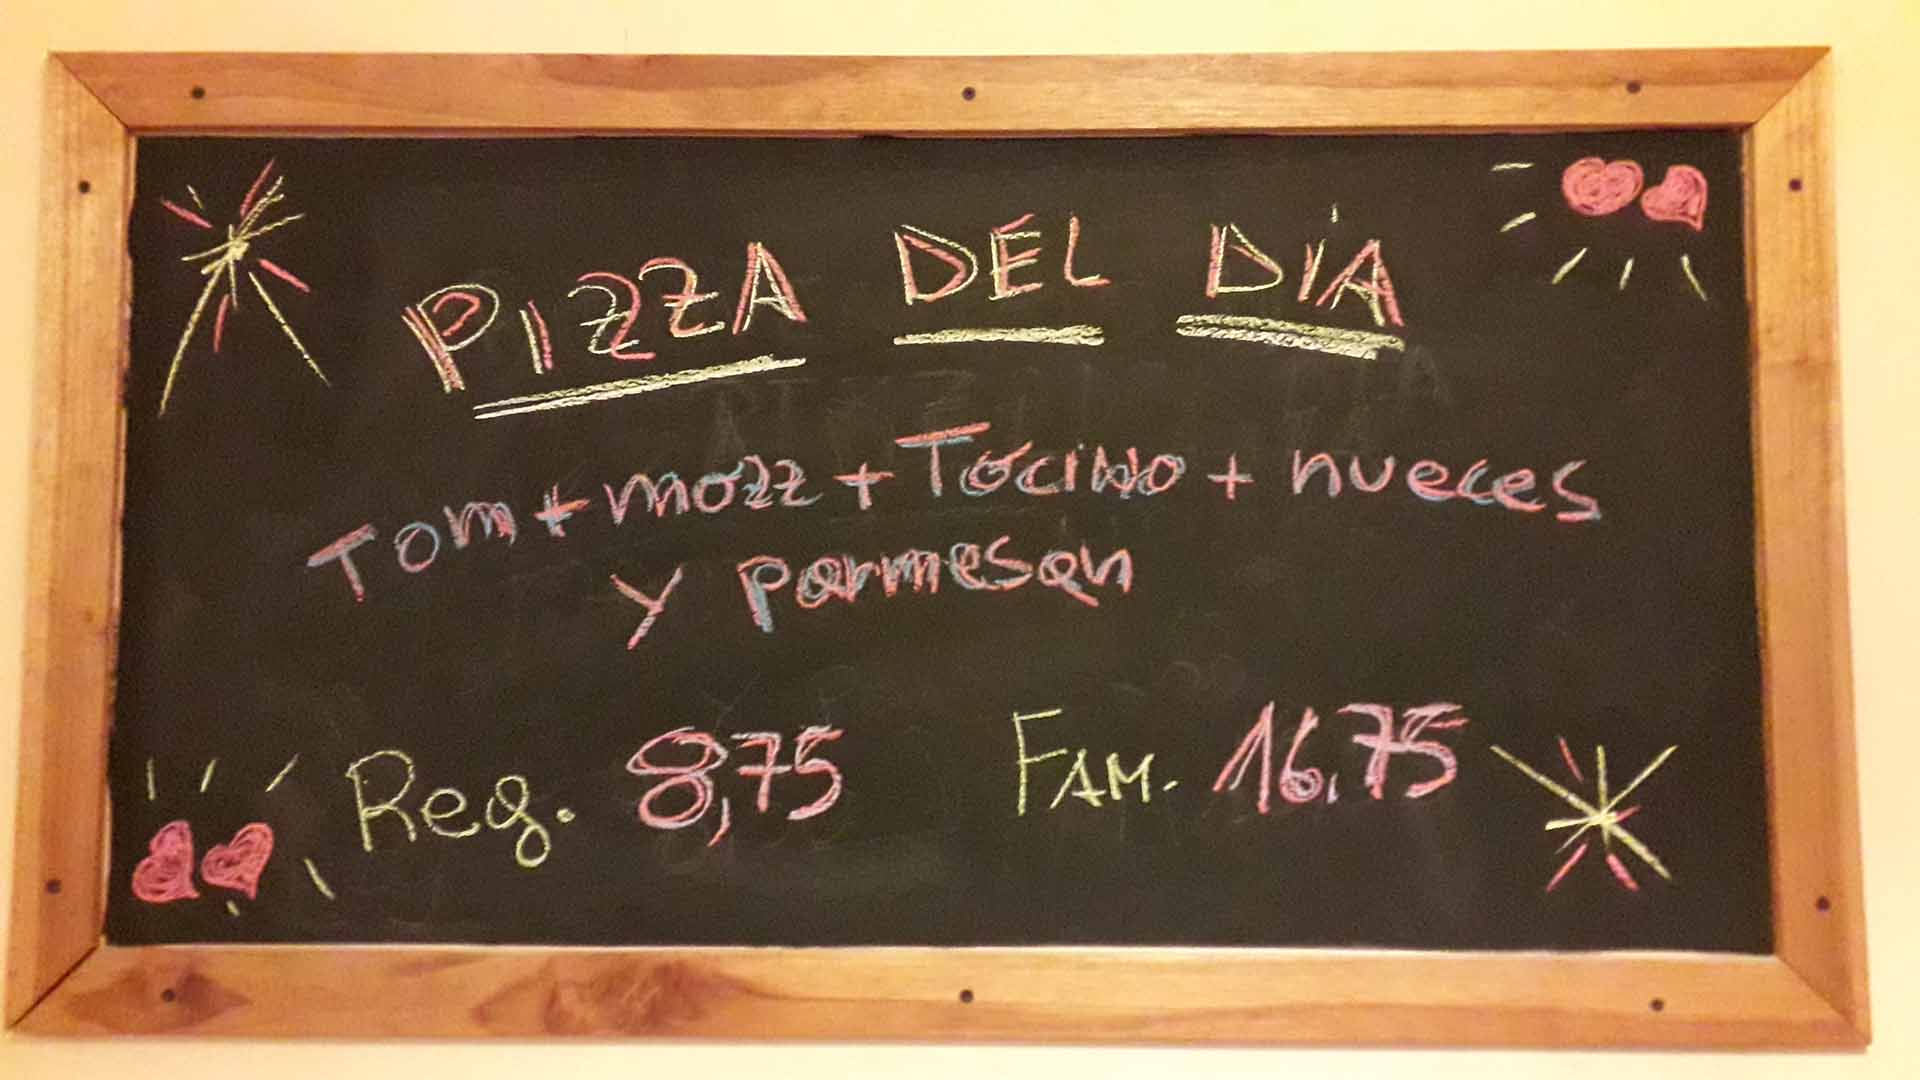 PIZZA DEL DÍA
Tom + mozz + Tocino + nueces
y parmesan
Reg. 8,75 FAM. 16,75